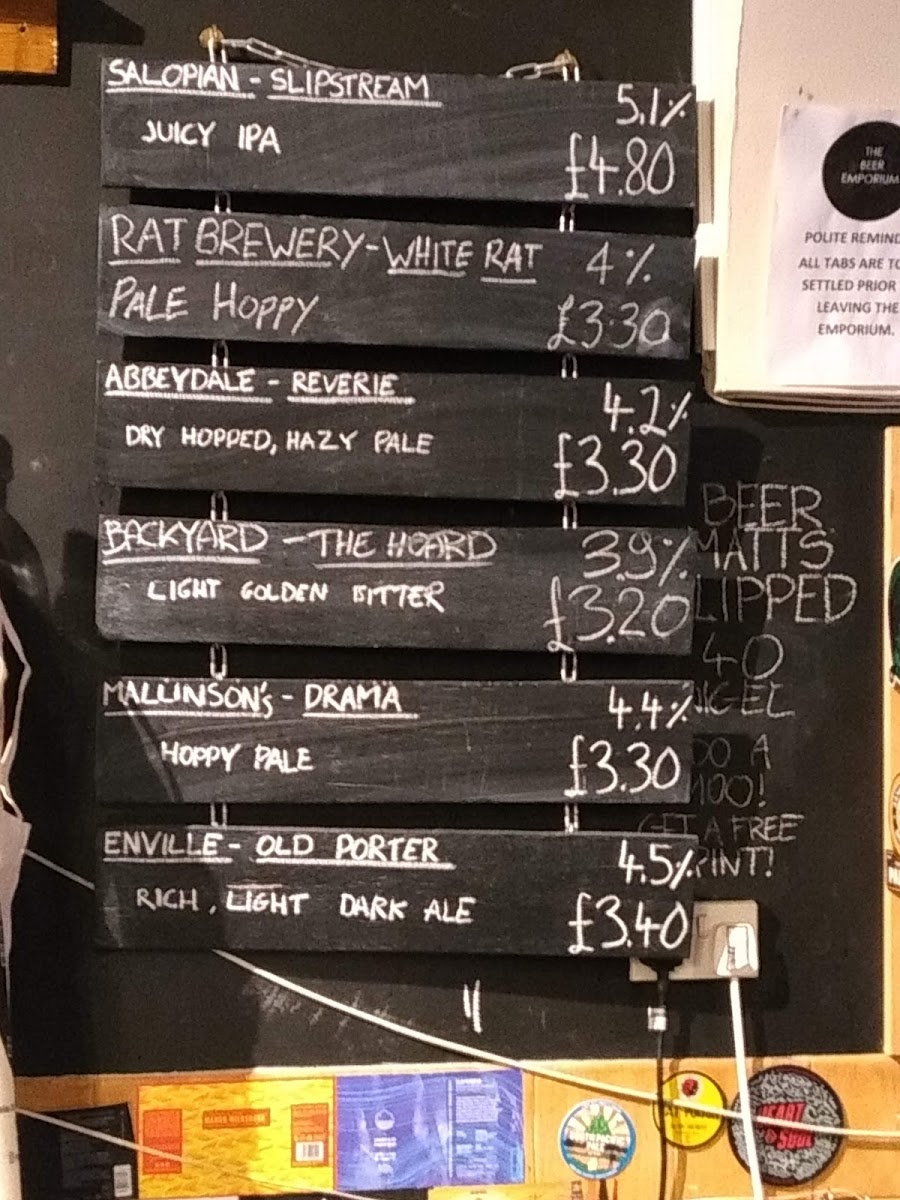 SALOPIAN - SLIPSTREAM 5.1%
JUICY IPA £4.80
RAT BREWERY - WHITE RAT 4%
PALE HOPPY £3.30
ABBEYDALE - REVERIE 4.2%
DRY HOPPED, HAZY PALE £3.30
BACKYARD - THE HOARD 3.9%
LIGHT GOLDEN BITTER £3.20
MALLINSON'S - DRAMA 4.4%
HOPPY PALE £3.30
ENVILLE - OLD PORTER 4.5%
RICH, LIGHT DARK ALE £3.40
THE
BEER
EMPORIUM
POLITE REMIND
ALL TABS ARE TO
SETTLED PRIOR
LEAVING THE
EMPORIUM.
BEER
MATTS
LIPPED
40
NIGEL
DO A
100!
GET A FREE
PINT!
SOUTH PACIFIC
PALE
HEART
&
SOUL